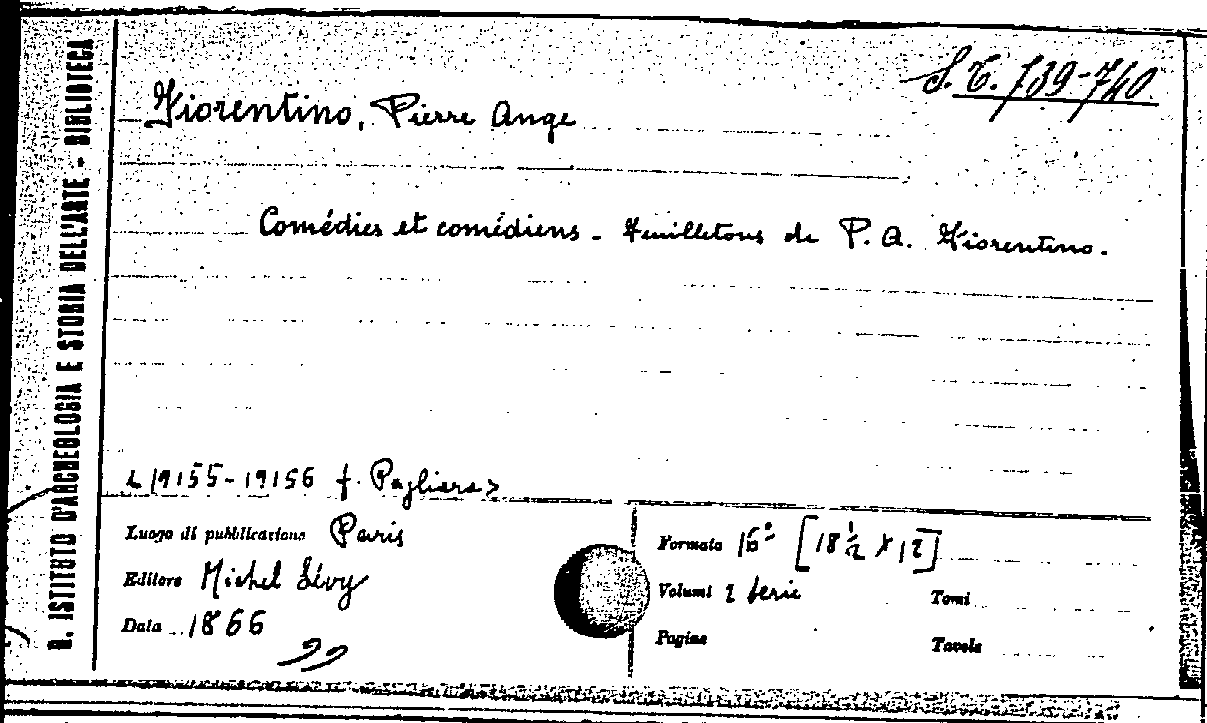 R. ISTITUTO D'ARCHEOLOGIA E STORIA DELL'ARTE - BIBLIOTECA
S. T. 739-740
Fiorentino, Pierre Ange
Comédies et comédiens - Feuilletons de P. A. Fiorentino.
<19155-19156 f. Pagliara>
Luogo di pubblicazione Paris
Editore Michel Lévy
Data 1866
Formato 16° [18 ½ x 12]
Volumi 2 Serie
Tomi
Pagine
Tavole